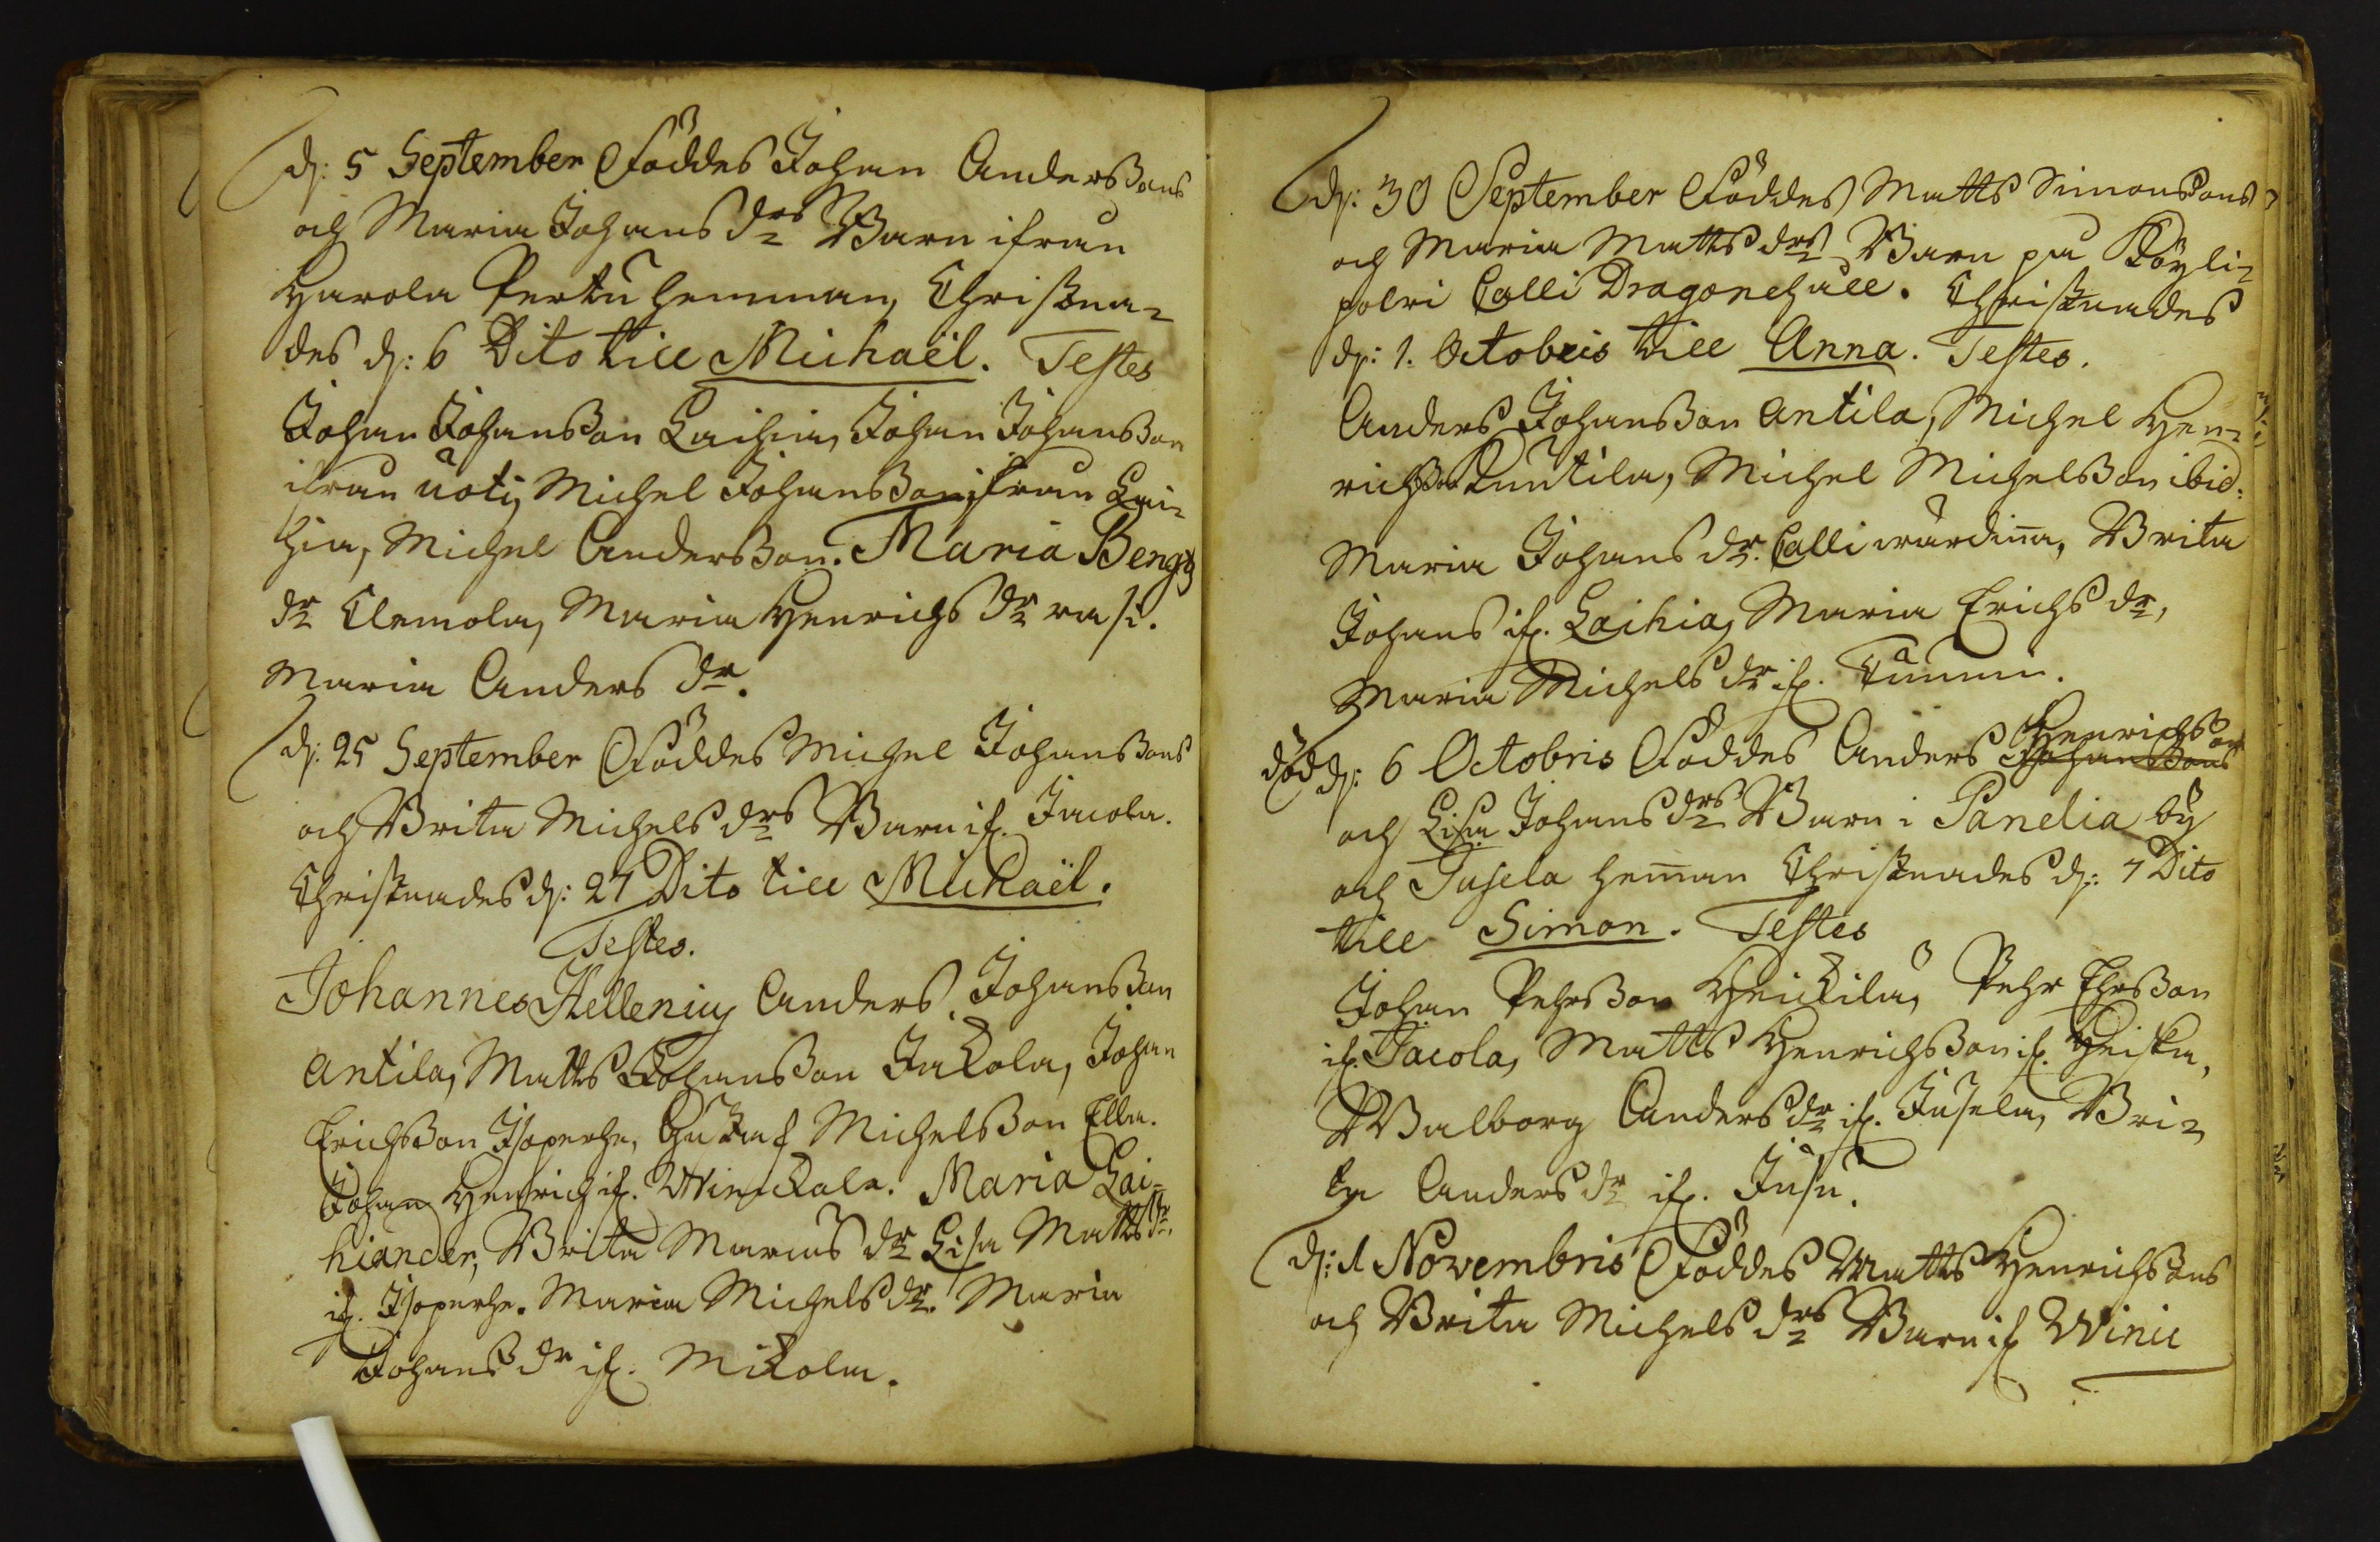 d: 5 September Föddes Johan Anderssons
och Maria Johans drs Barn ifrån
Harola Pertu hemman, Christna-
des d: 6 Dito till Michaël. Testes
Johan Johansson Laihia, Johan Johansson
ifrån Uoti, Michel Johansson ifrån Lai-
hia, Michel Andersson. Maria Bengts
dr Clemola, Maria Henrichs dr
Maria Anders dr.
d: 25 September Föddes Michel Johanssons
och Brita Michels drs Barn if. Jacola.
Christnades d: 27 Dito till Michaël.
Testes.
Johannes Hellenius Anders Johansson
Antila, Matts Johansson Jakola, Johan
Erichsson Isoperhe, Gustaf Michelsson Ella.
Johan Henrich if. Winickala. Maria Lai-
hiander, Brita Marcus dr Lisa Matts dr.
if. Isoperhe. Maria Michels dr. Maria
Johans dr if. Mikola.
d: 30 September Föddes Matts Simonssons
och Maria Matts drs Barn på Köyli-
polvi Calli Dragonehåll. Christnades
d: 1. Octobris till Anna. Testes.
Anders Johansson Antila, Michel Hen-
richsson Kuutila, Michel Michelsson ibid:
Maria Johans dr. Calli wärdinna, Brita
Johans if. Laihia, Maria Erichs dr,
Maria Michels dr if. Tummi.
död d: 6 Octobris Föddes Anders Henrichssons Johanssons
och Lisa Johans drs Barn i Panelia by
och Jusela hemman Christnades d: 7 Dito
till Simon. Testes
Johan Pehrsson Heickilä, Pehr Ehrsson
if. Jacola, Matts Henrichsson if. Heiska,
Walborg Anders dr if. Jusela, Bri-
ta Anders dr if. Jusu.
d: 1 Novembris Föddes Matts Henrichssons
och Brita Michels drs Barn if Winic